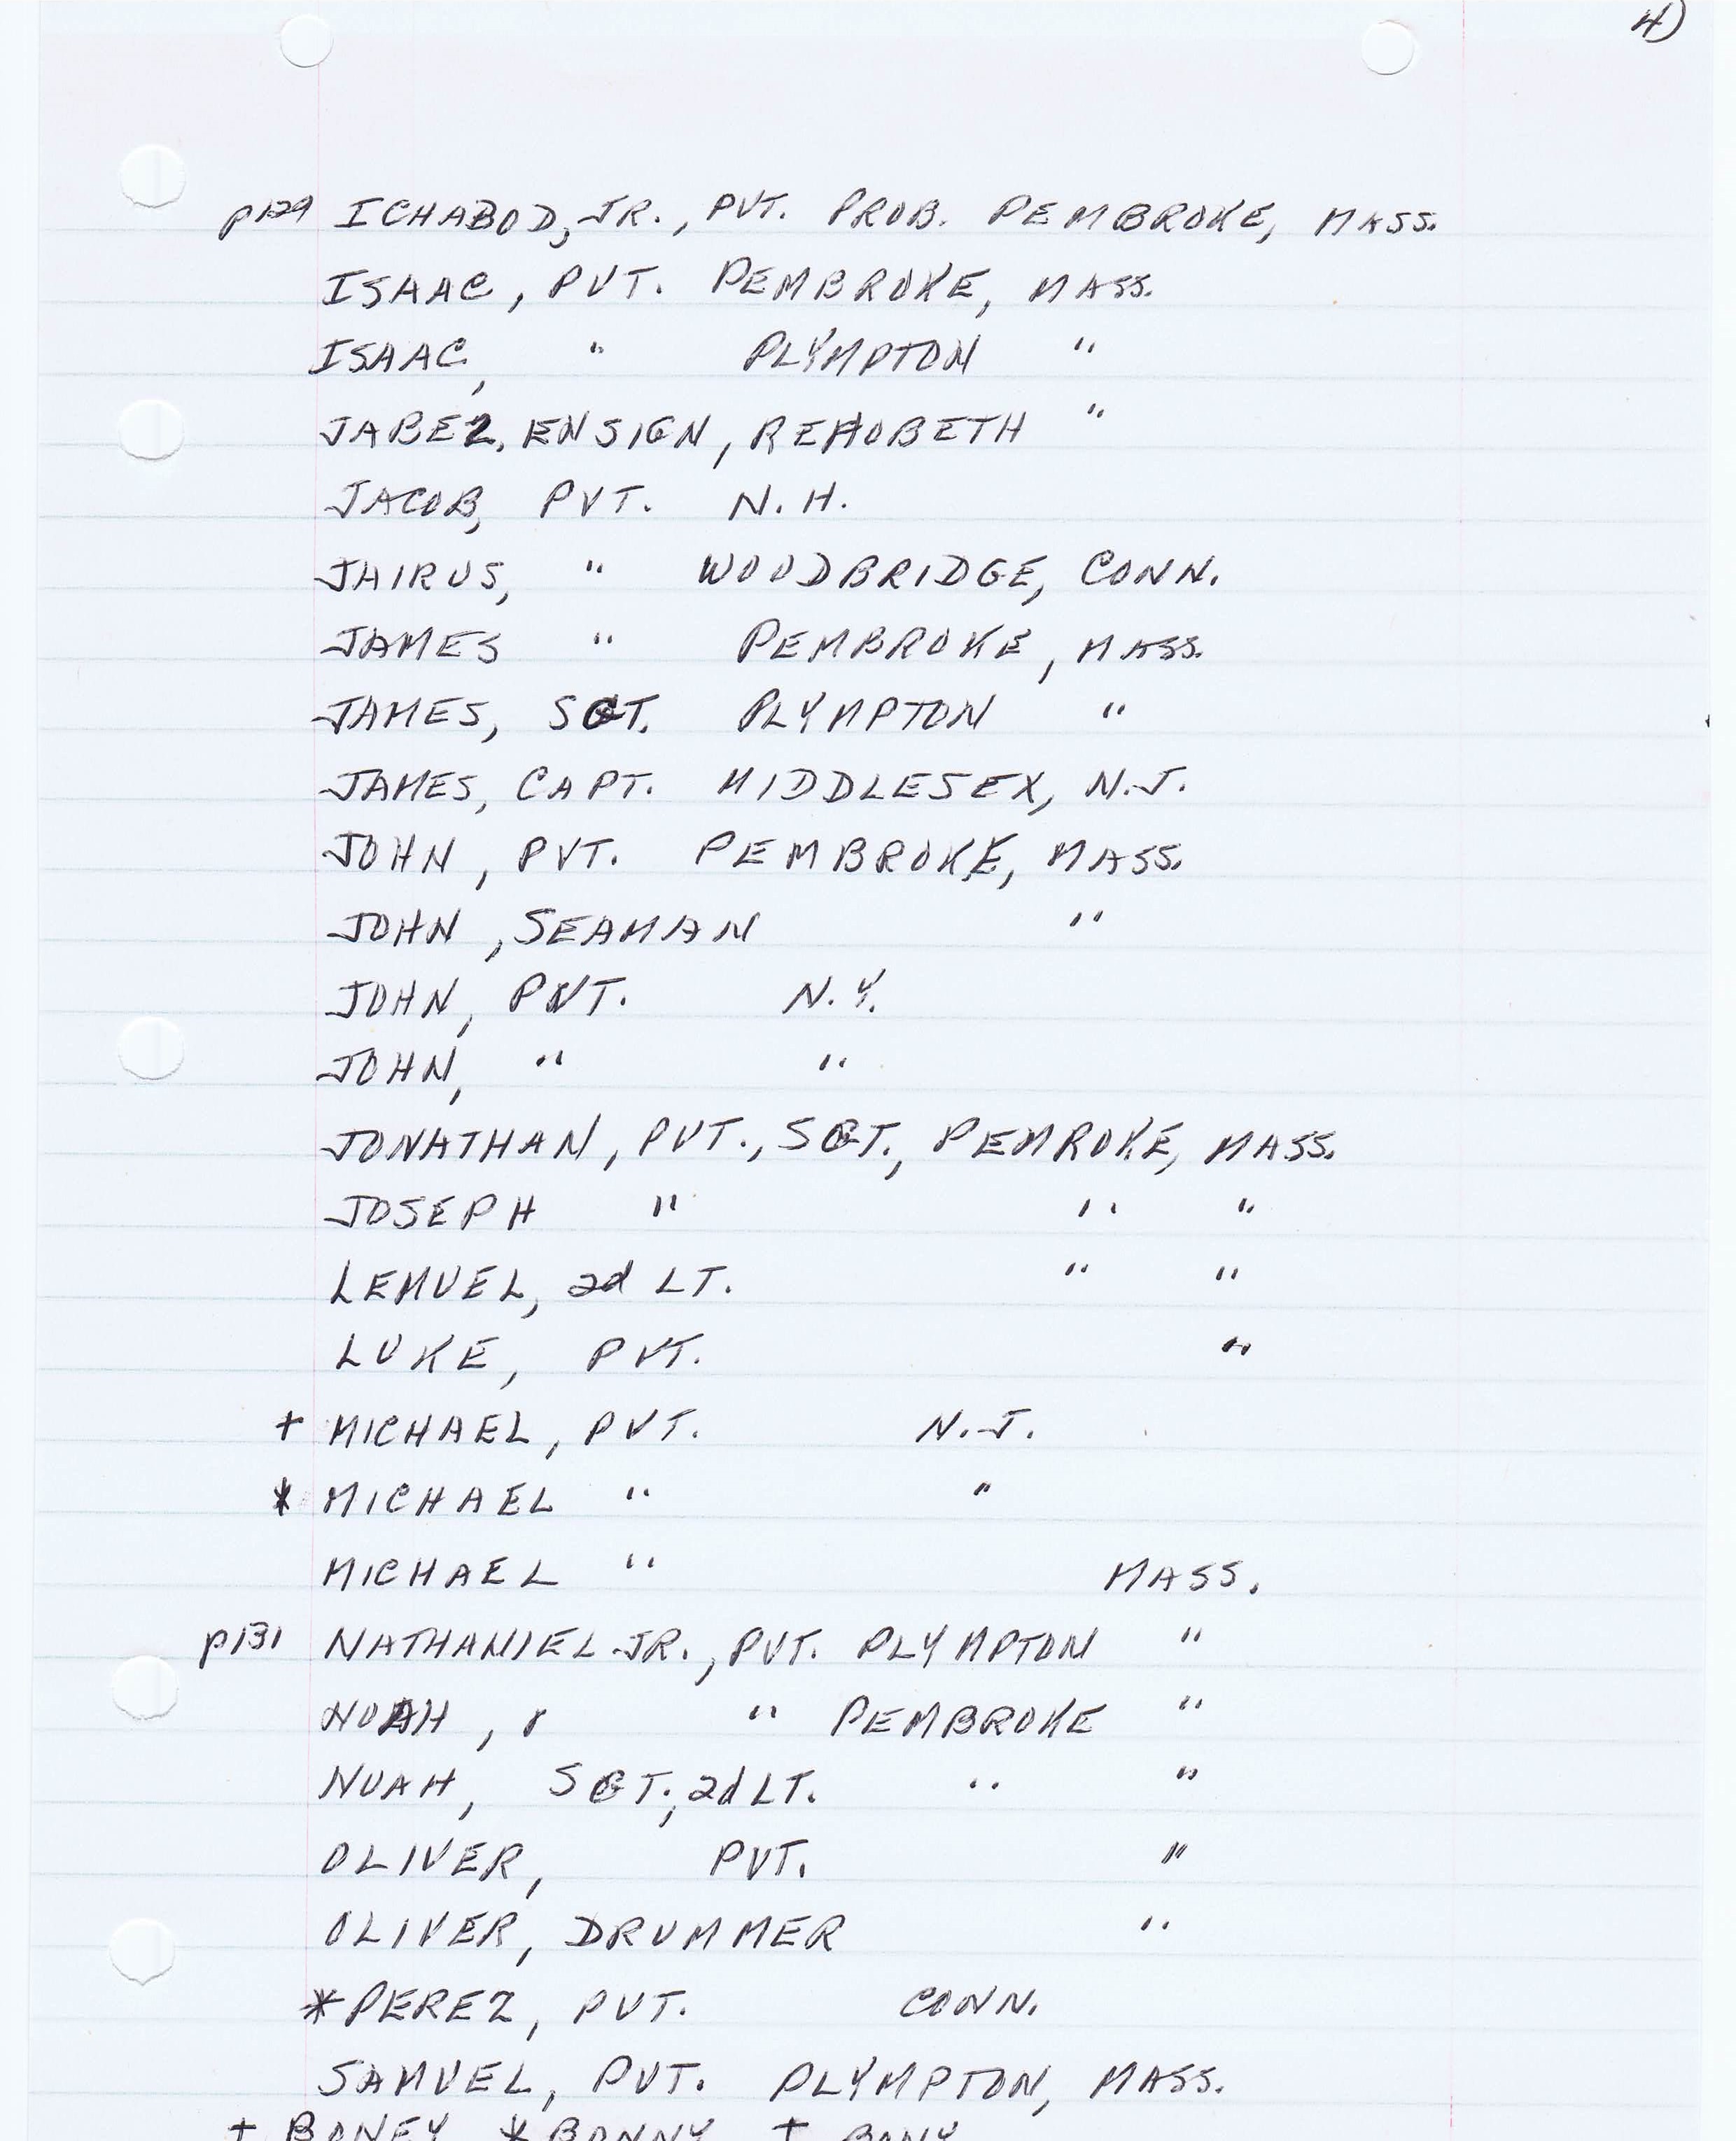 4)
p129 ICHABOD, JR., PVT. PROB. PEMBROKE, MASS.
ISAAC, PVT. PEMBROKE, MASS.
ISAAC, " PLYMPTON "
JABEZ, ENSIGN, REHOBETH "
JACOB, PVT. N.H.
JAIRUS, " WOODBRIDGE, CONN.
JAMES " PEMBROKE, MASS.
JAMES, SGT. PLYMPTON "
JAMES, CAPT. MIDDLESEX, N.J.
JOHN, PVT. PEMBROKE, MASS.
JOHN, SEAMAN "
JOHN, PVT. N.Y.
JOHN, " "
JONATHAN, PVT., SGT., PEMROKE, MASS.
JOSEPH " " "
LEMUEL, 2d LT. " "
LUKE, PVT. "
+ MICHAEL, PVT. N.J.
* MICHAEL " "
MICHAEL " MASS.
p131 NATHANIEL JR., PVT. PLYMPTON "
NOAH, " PEMBROKE "
NOAH, SGT., 2d LT. " "
OLIVER, PVT. "
OLIVER, DRUMMER "
*PEREZ, PVT. CONN.
SAMUEL, PVT. PLYMPTON, MASS.
+ BONEY * BONNY + BONY